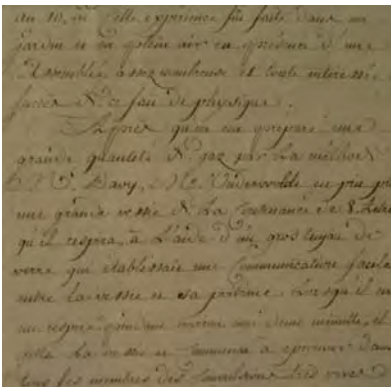 au 10, où cette expérience fut faite dans un
jardin et en plein air en présence d'une
Assemblée assez nombreuse et toute intéressée
de ce fait de physique.
Après qu'on eut préparé une
grande quantité de gaz par la méthode
Davy, Mr. prit
une grande vessie de la contenance de 8
qu'il respira à l'aide d'un gros tuyau de
verre qui établissait une communication facile
entre la vessie et sa poitrine. Lorsqu'il eut
respiré une minute, il
la vessie et commença à éprouver dans
tous les membres des très vives